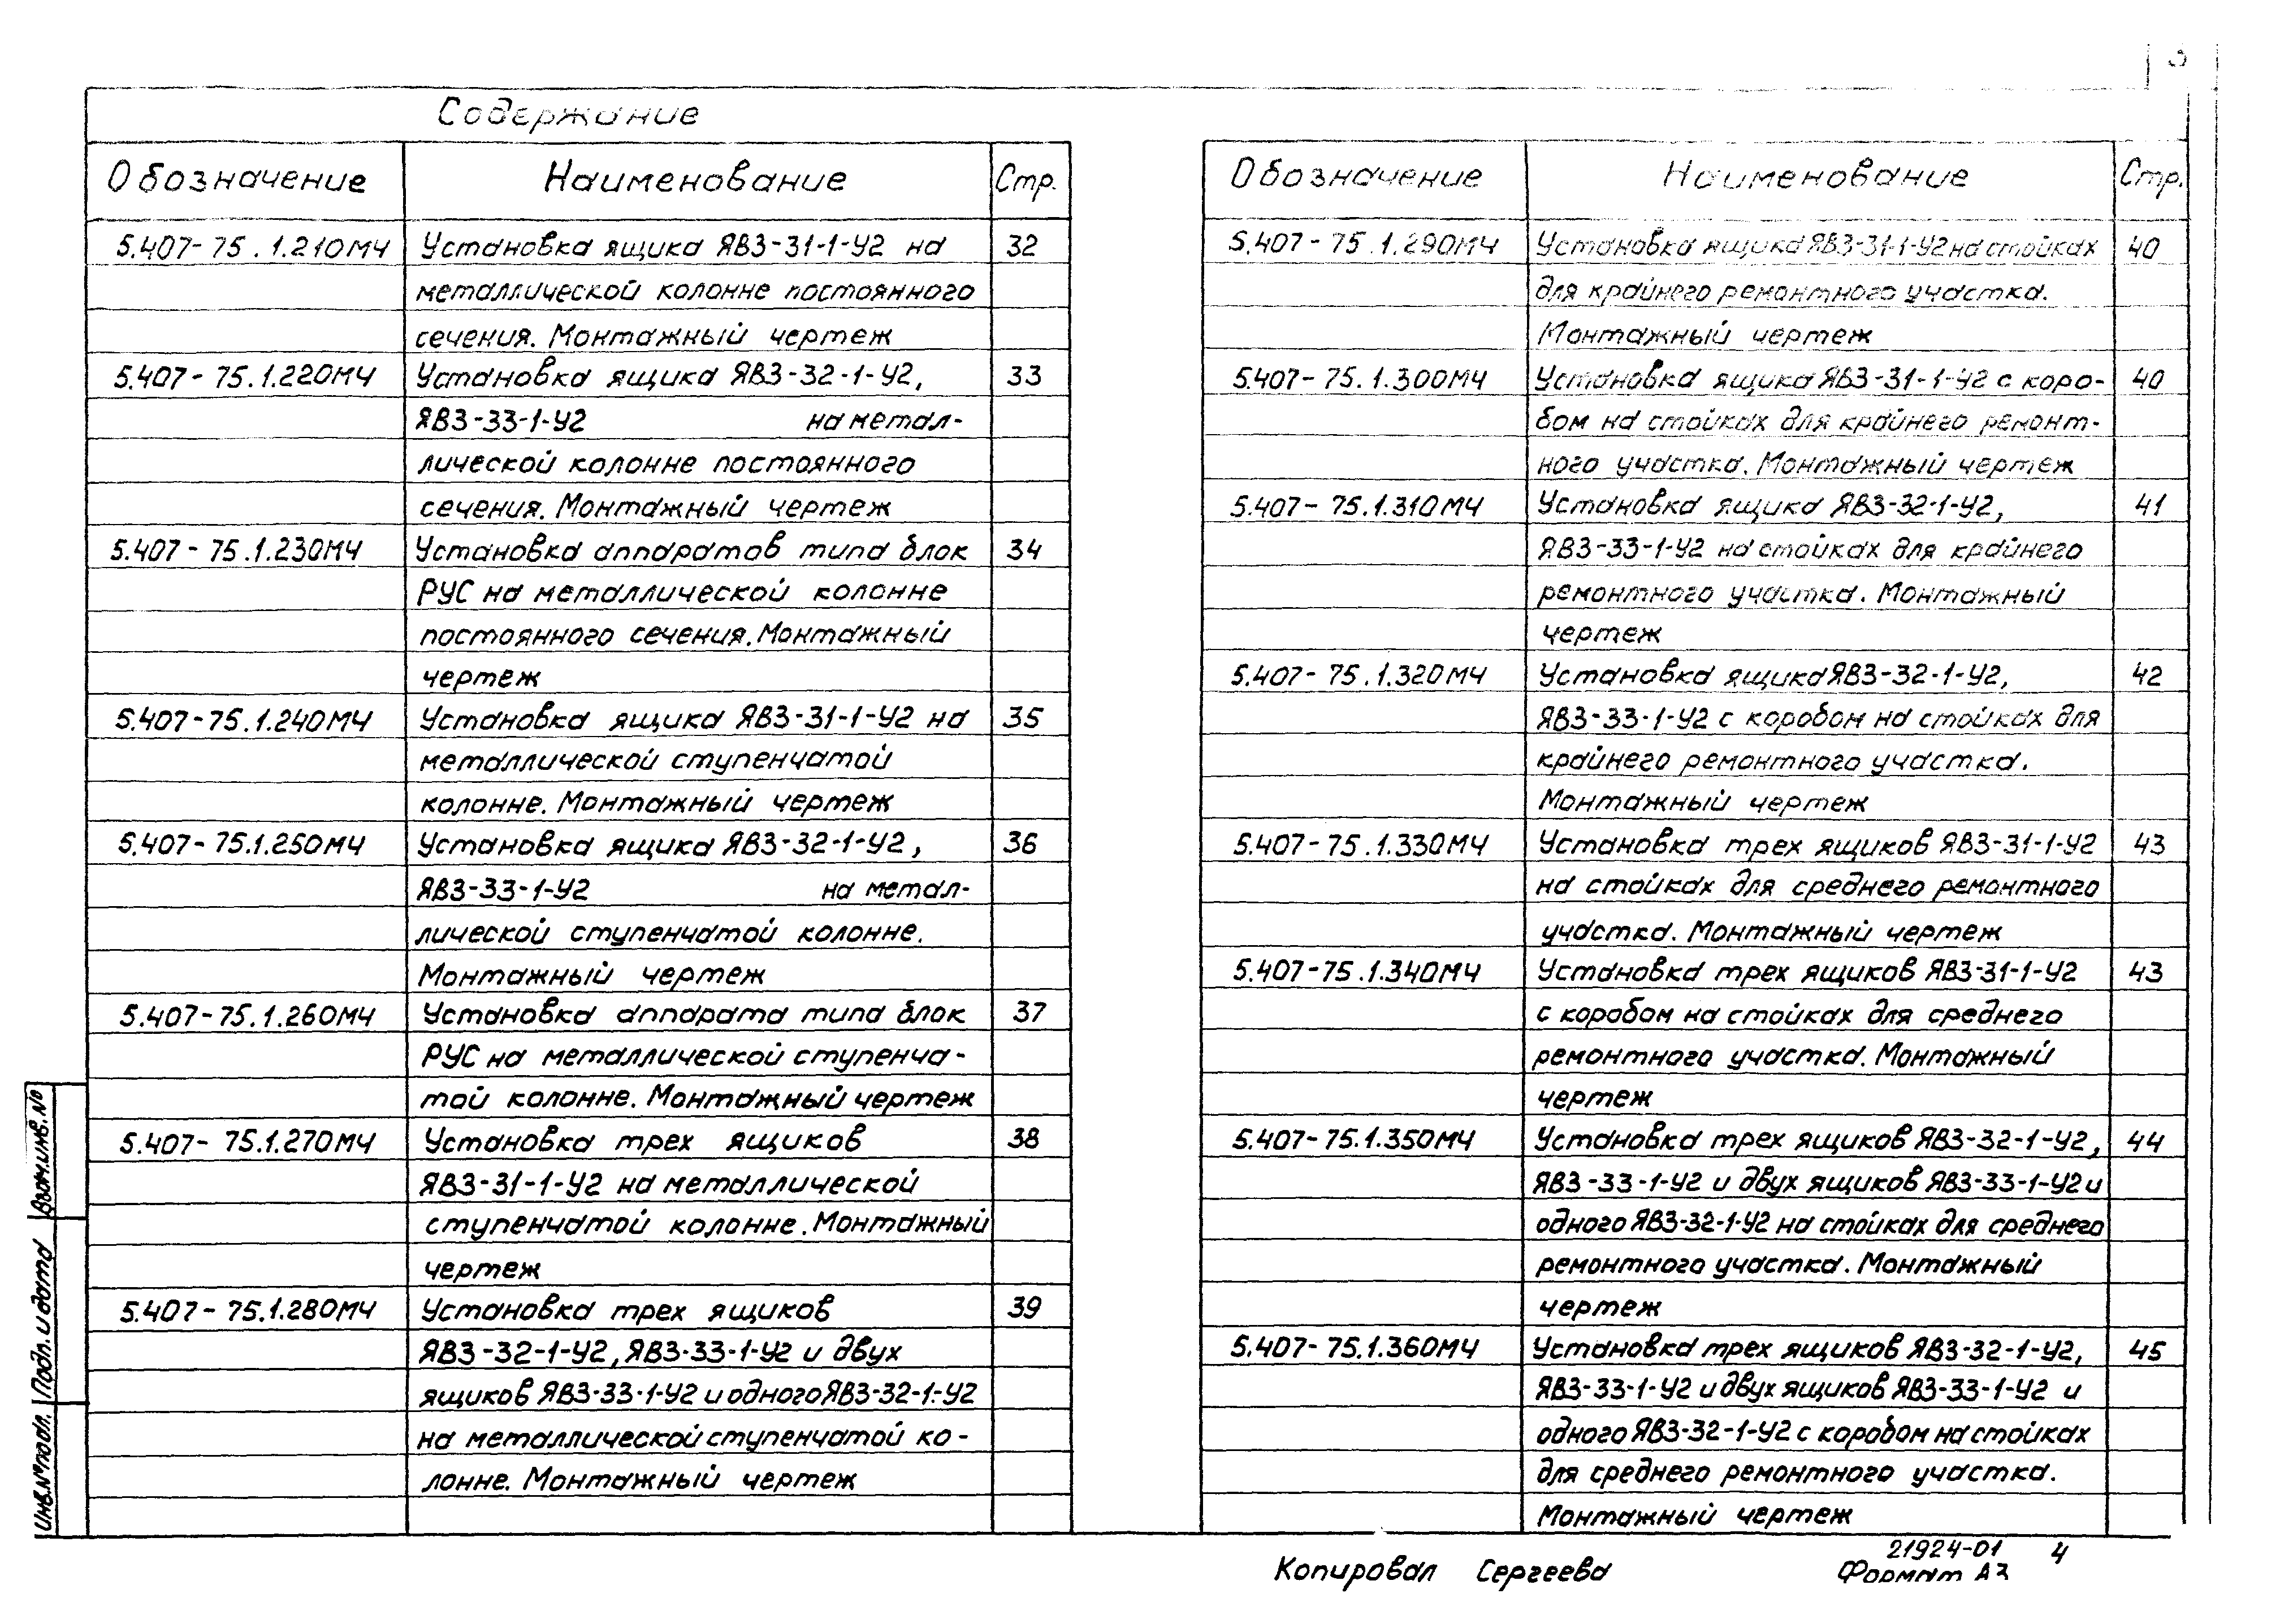 3
Содержание
Обозначение Наименование Стр.
5.407-75.1.210МЧ Установка ящика ЯВЗ-31-1-У2 на 32
металлической колонне постоянного
сечения. Монтажный чертеж
5.407-75.1.220МЧ Установка ящика ЯВЗ-32-1-У2, 33
ЯВЗ-33-1-У2 на метал-
лической колонне постоянного
сечения. Монтажный чертеж
5.407-75.1.230МЧ Установка аппаратов типа блок 34
РУС на металлической колонне
постоянного сечения. Монтажный
чертеж
5.407-75.1.240МЧ Установка ящика ЯВЗ-31-1-У2 на 35
металлической ступенчатой
колонне. Монтажный чертеж
5.407-75.1.250МЧ Установка ящика ЯВЗ-32-1-У2, 36
ЯВЗ-33-1-У2 на метал-
лической ступенчатой колонне.
Монтажный чертеж
5.407-75.1.260МЧ Установка аппарата типа блок 37
РУС на металлической ступенча-
той колонне. Монтажный чертеж
5.407-75.1.270МЧ Установка трех ящиков 38
ЯВЗ-31-1-У2 на металлической
ступенчатой колонне. Монтажный
чертеж
5.407-75.1.280МЧ Установка трех ящиков 39
ЯВЗ-32-1-У2, ЯВЗ-33-1-У2 и двух
ящиков ЯВЗ-33-1-У2 и одного ЯВЗ-32-1-У2
на металлической ступенчатой ко-
лонне. Монтажный чертеж
Обозначение Наименование Стр.
5.407-75.1.290МЧ Установка ящика ЯВЗ-31-1-У2 на стойках 40
для крайнего ремонтного участка.
Монтажный чертеж
5.407-75.1.300МЧ Установка ящика ЯВЗ-31-1-У2 с коро- 40
бом на стойках для крайнего ремонт-
ного участка. Монтажный чертеж
5.407-75.1.310МЧ Установка ящика ЯВЗ-32-1-У2, 41
ЯВЗ-33-1-У2 на стойках для крайнего
ремонтного участка. Монтажный
чертеж
5.407-75.1.320МЧ Установка ящика ЯВЗ-32-1-У2, 42
ЯВЗ-33-1-У2 с коробом на стойках для
крайнего ремонтного участка.
Монтажный чертеж
5.407-75.1.330МЧ Установка трех ящиков ЯВЗ-31-1-У2 43
на стойках для среднего ремонтного
участка. Монтажный чертеж
5.407-75.1.340МЧ Установка трех ящиков ЯВЗ-31-1-У2 43
с коробом на стойках для среднего
ремонтного участка. Монтажный
чертеж
5.407-75.1.350МЧ Установка трех ящиков ЯВЗ-32-1-У2, 44
ЯВЗ-33-1-У2 и двух ящиков ЯВЗ-33-1-У2 и
одного ЯВЗ-32-1-У2 на стойках для среднего
ремонтного участка. Монтажный
чертеж
5.407-75.1.360МЧ Установка трех ящиков ЯВЗ-32-1-У2, 45
ЯВЗ-33-1-У2 и двух ящиков ЯВЗ-33-1-У2 и
одного ЯВЗ-32-1-У2 с коробом на стойках
для среднего ремонтного участка.
Монтажный чертеж
Взам.инв.№
Подп. и дата
Инв.№подл.
21924-01 4
Копировал Сергеева Формат А3